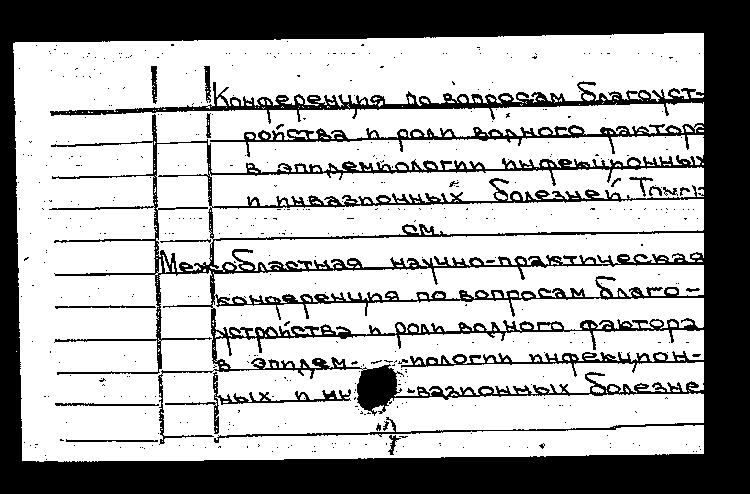 Конференция по вопросам благоуст-
ройства и роли водного фактора
в эпидемиологии инфекционных
и инвазионных болезней. Томск
см.
Межобластная научно-практическая
конференция по вопросам благо-
устройства и роли водного фактора
в эпидем- -иологии инфекцион-
ных и ин -вазионных болезне